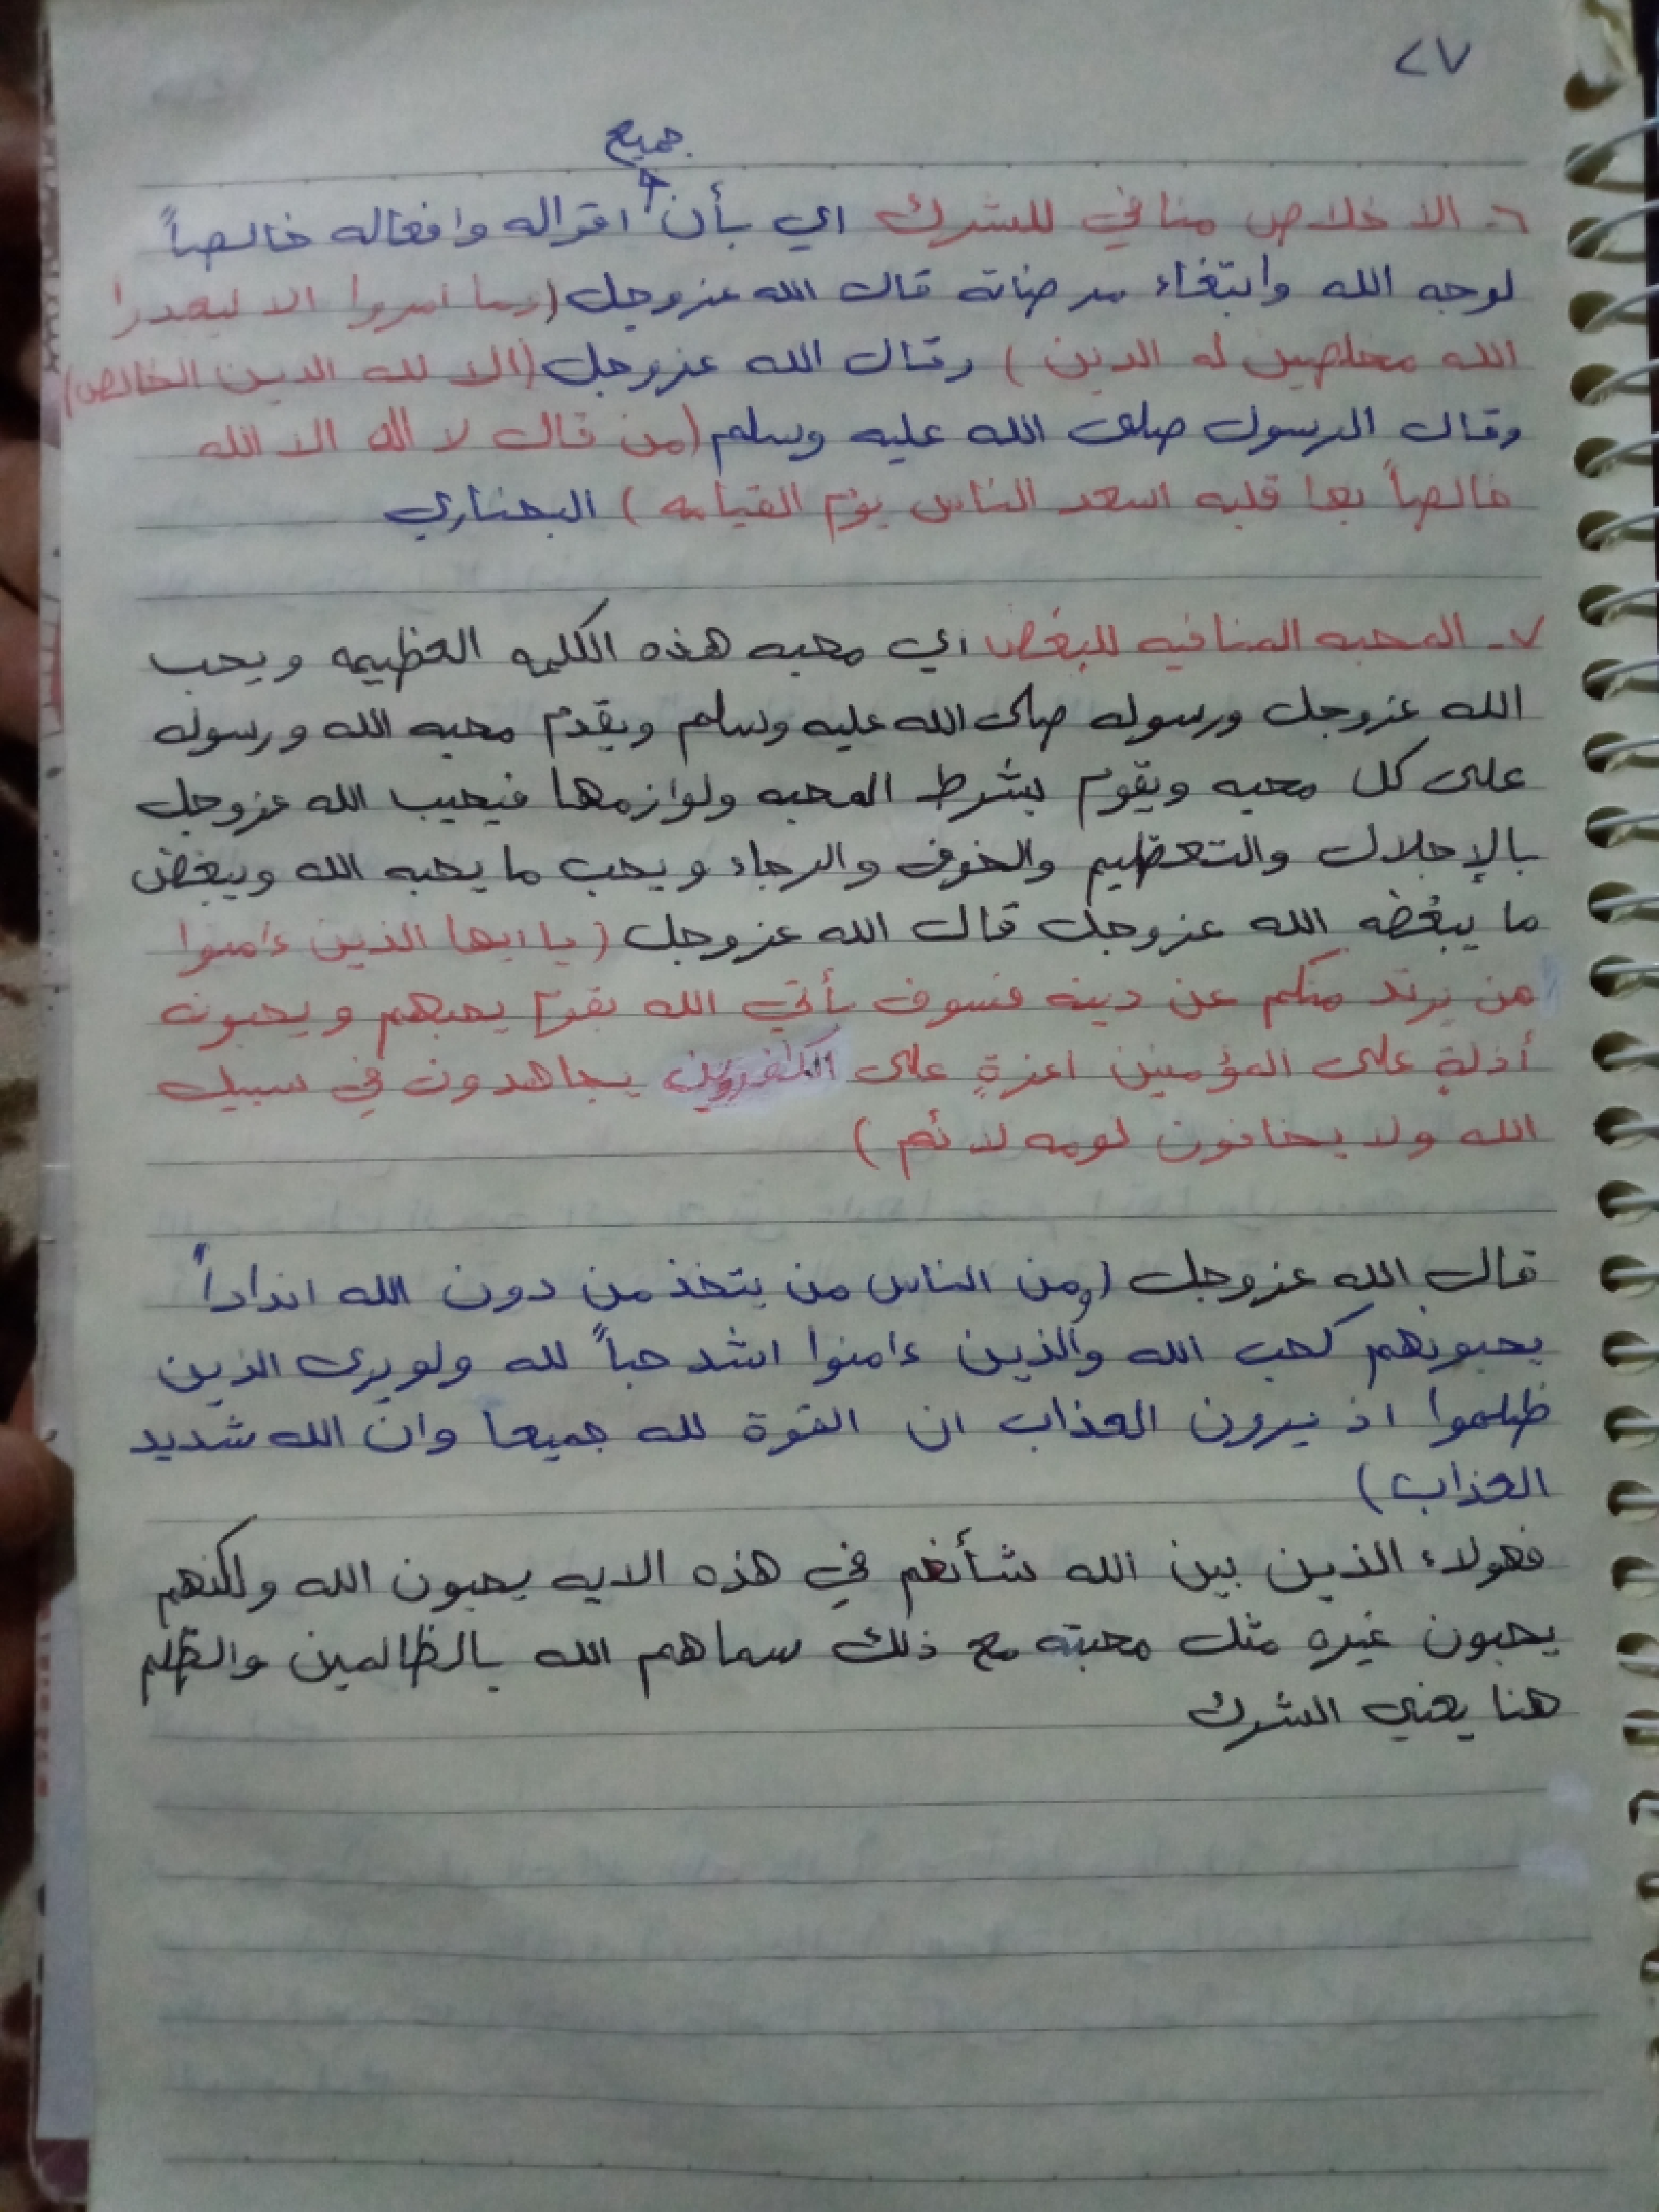 ٢٧
جميع
٦- الاخلاص منافي للشرك اي بأن اقواله وافعاله خالصاً
لوجه الله وابتغاء مرضاته قال الله عزوجل (وما امروا الا ليعبدوا
الله مخلصين له الدين) وقال الله عزوجل (الا لله الدين الخالص)
وقال الرسول صلى الله عليه وسلم (من قال لا اله الا الله
خالصاً بها قلبه اسعد الناس يوم القيامه) البخاري
٧- المحبه المنافيه للبغض اي محبه هذه الكلمه العظيمه ويحب
الله عزوجل ورسوله صلى الله عليه وسلم ويقدم محبه الله ورسوله
على كل محبه ويقوم بشرط المحبه ولوازمها فيحيب الله عزوجل
بالإجلال والتعظيم والخوف والرجاء ويحب ما يحبه الله ويبغض
ما يبغضه الله عزوجل قال الله عزوجل (يا ايها الذين ءامنوا
من يرتد منكم عن دينه فسوف يأتي الله بقوم يحبهم ويحبونه
أذلةٍ على المؤمنين اعزةٍ على الكفرين يجاهدون في سبيل
الله ولا يخافون لومه لائم)
قال الله عزوجل (ومن الناس من يتخذ من دون الله انداداً
يحبونهم كحب الله والذين ءامنوا اشد حباً لله ولو يرى الذين
ظلموا اذ يرون العذاب ان القوة لله جميعا وان الله شديد
العذاب)
فهولاء الذين بين الله شأنهم في هذه الايه يحبون الله ولكنهم
يحبون غيره مثل محبته مع ذلك سماهم الله بالظالمين والظلم
هنا يعني الشرك